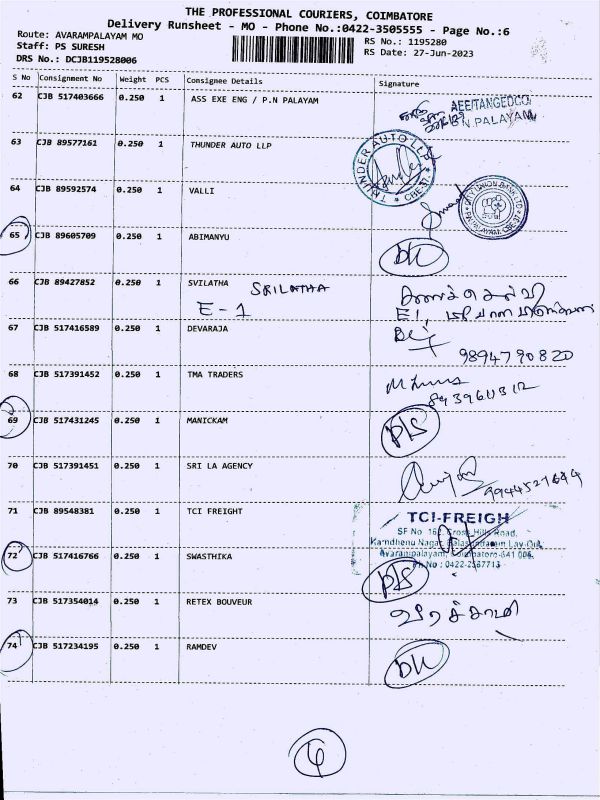 THE PROFESSIONAL COURIERS, COIMBATORE
Delivery Runsheet - MO - Phone No.:0422-3505555 - Page No.:6
Route: AVARAMPALAYAM MO
RS No.: 1195280
Staff: PS SURESH
RS Date: 27-Jun-2023
DRS No.: DCJB119528006
S No Consignment No Weight PCS Consignee Details Signature
62 CJB 517403666 0.250 1 ASS EXE ENG / P.N PALAYAM
AEE/TANGEDCO
P.N PALAYAM
63 CJB 89577161 0.250 1 THUNDER AUTO LLP
THUNDER AUTO LLP * CBE-37 *
64 CJB 89592574 0.250 1 VALLI
CITY UNION BANK LTD
65 CJB 89605709 0.250 1 ABIMANYU
DK
66 CJB 89427852 0.250 1 SVILATHA SRILATHA
E-1
E1,
67 CJB 517416589 0.250 1 DEVARAJA
9894790820
68 CJB 517391452 0.250 1 TMA TRADERS
69 CJB 517431245 0.250 1 MANICKAM
PLS
70 CJB 517391451 0.250 1 SRI LA AGENCY
71 CJB 89548381 0.250 1 TCI FREIGHT
TCI-FREIGH
SF No 162, Cross Hills Road,
Kamdhenu Nagar, Lay-Out,
Avarampalayam, Coimbatore-641 006.
Ph No : 0422-2567713
72 CJB 517416766 0.250 1 SWASTHIKA
PLS
73 CJB 517354014 0.250 1 RETEX BOUVEUR
வீரச்சாமி
74 CJB 517234195 0.250 1 RAMDEV
DK
4